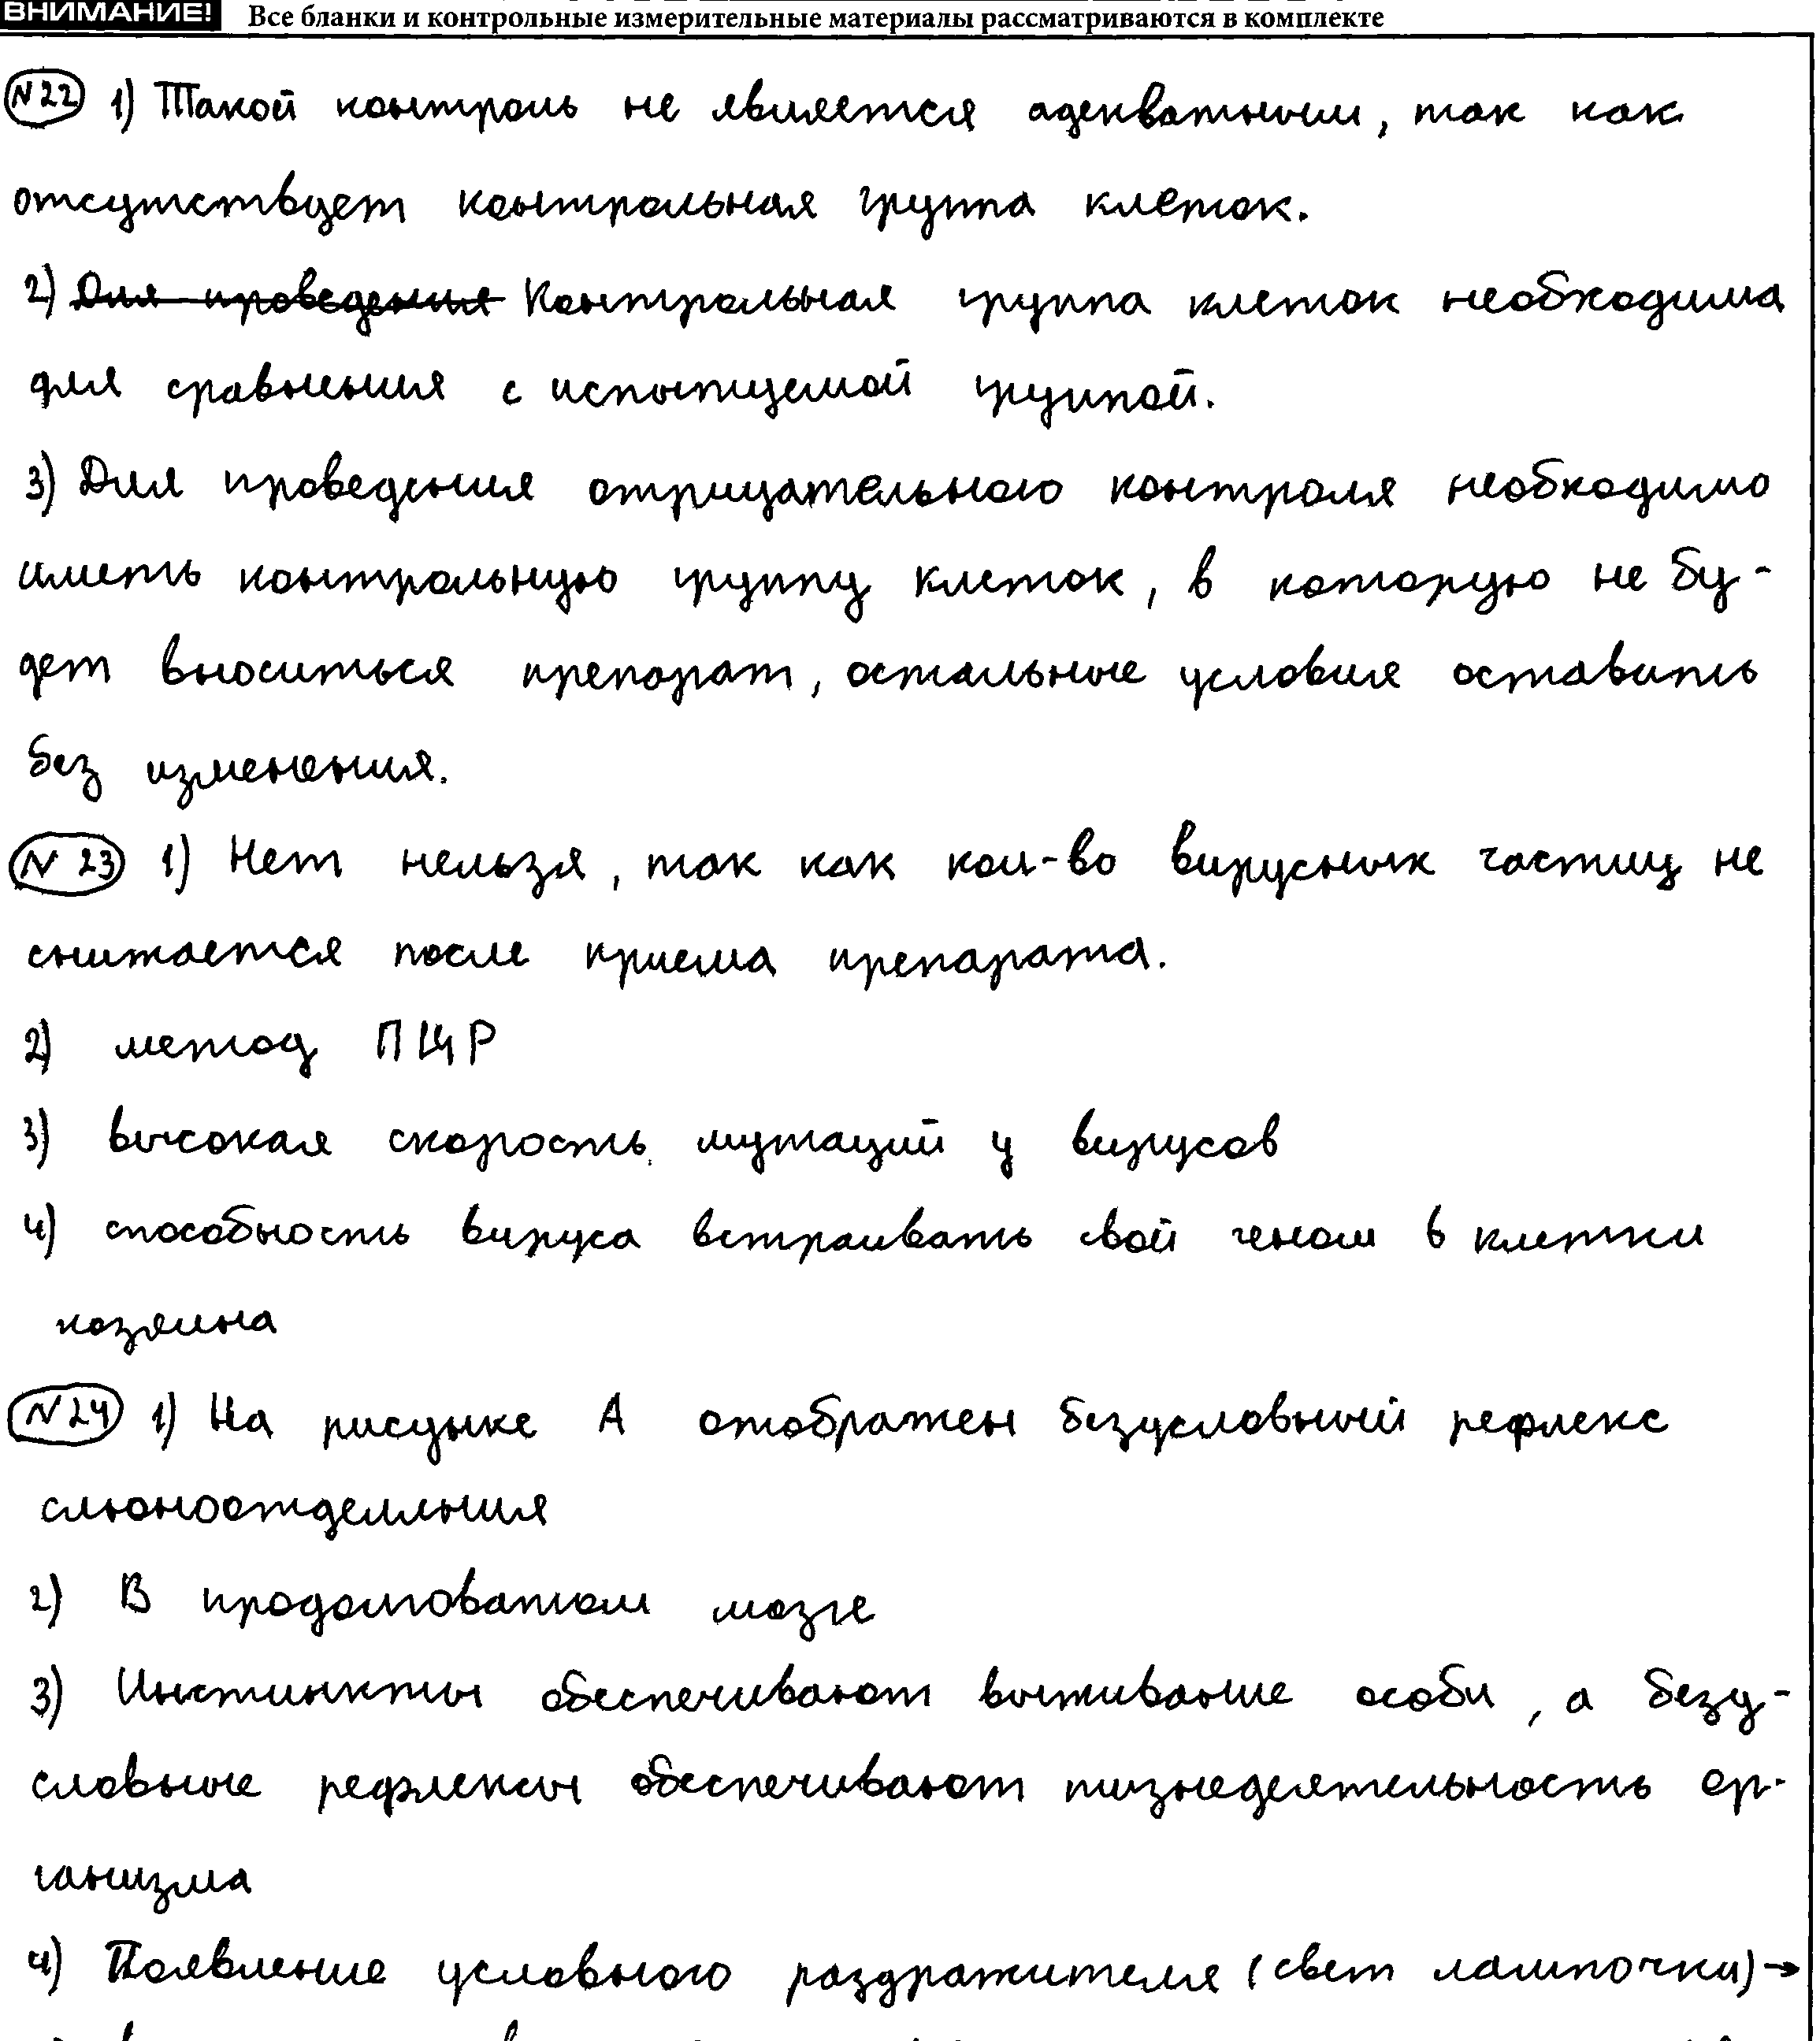 ВНИМАНИЕ! Все бланки и контрольные измерительные материалы рассматриваются в комплекте
N22 1) Такой контроль не является адекватным, так как
отсутствует контрольная группа клеток.
2) Для проведения Контрольная группа клеток необходима
для сравнения с испытуемой группой.
3) Для проведения отрицательного контроля необходимо
иметь контрольную группу клеток, в которую не бу-
дет вноситься препарат, остальные условия оставить
без изменения.
N 23 1) Нет нельзя, так как кол-во вирусных частиц не
снижается после приема препарата.
2) метод ПЦР
3) высокая скорость мутаций у вирусов
4) способность вируса встраивать свой геном в клетки
хозяина
N24 1) На рисунке А отображен безусловный рефлекс
слюноотделения
2) В продолговатом мозге
3) Инстинкты обеспечивают выживание особи, а безу-
словные рефлексы обеспечивают жизнедеятельность ор-
ганизма
4) Появление условного раздражителя (свет лампочки) →